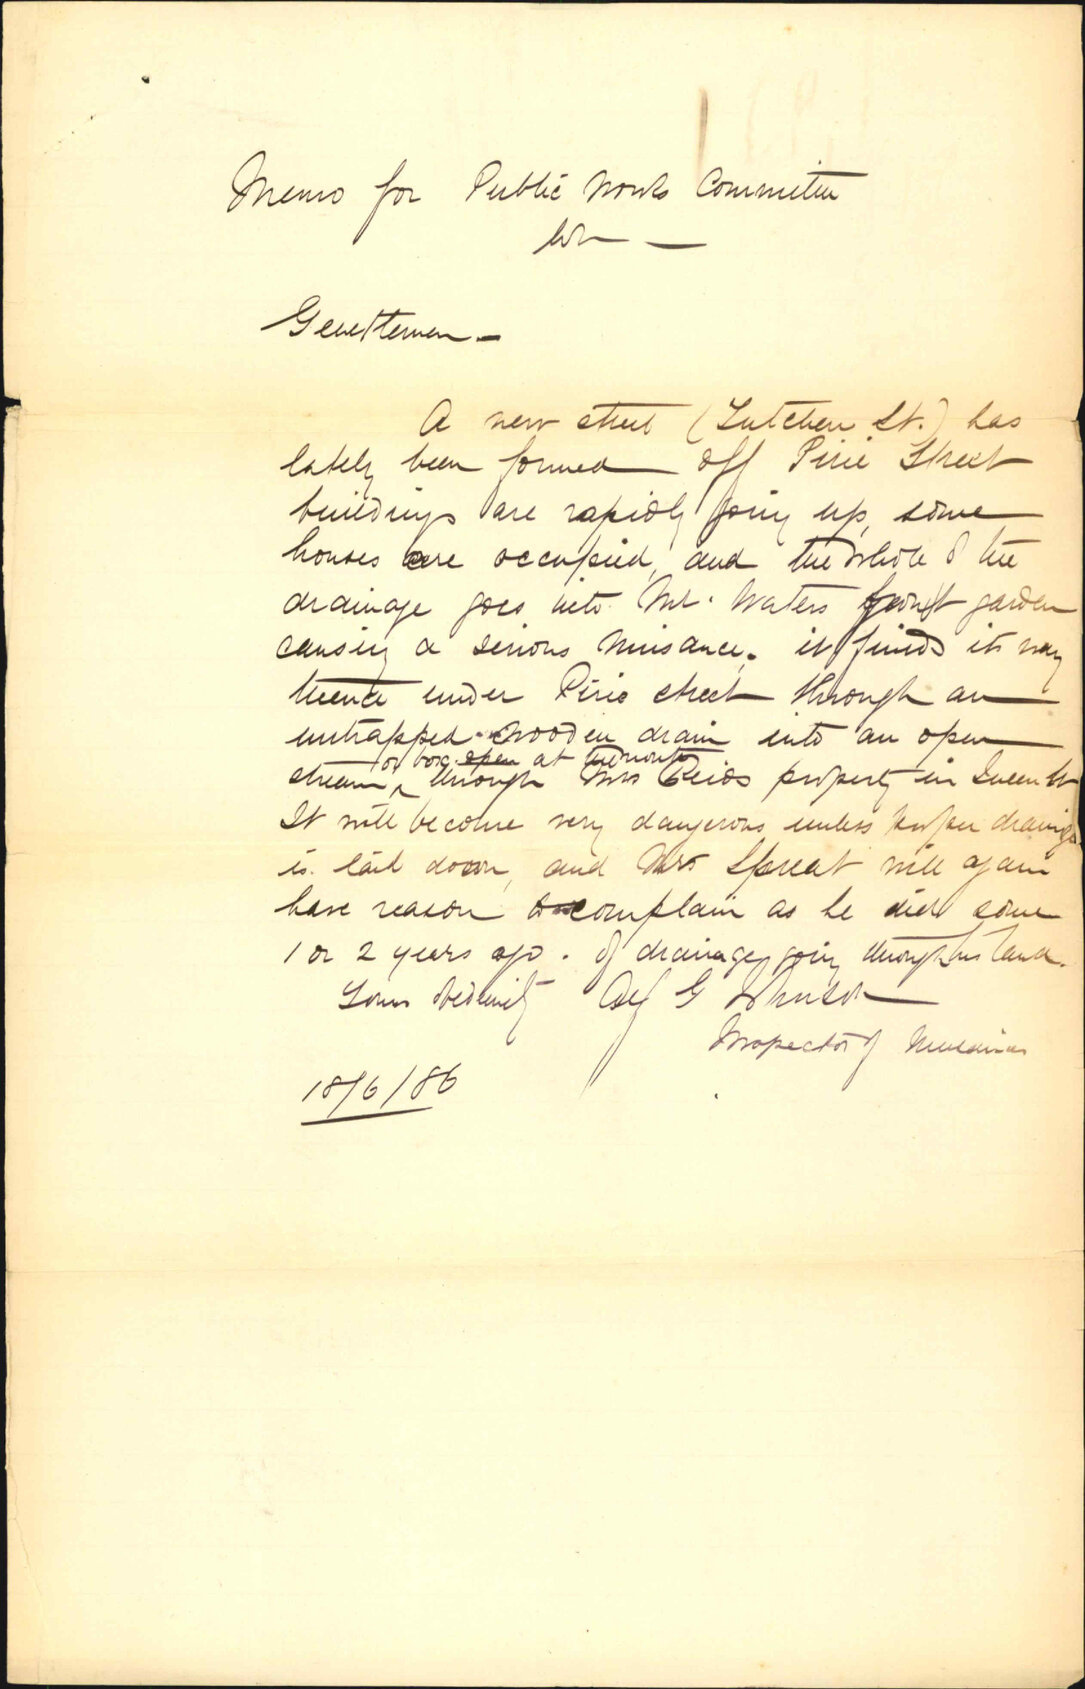 Memo for Public Works Committee
Gentlemen -
A new street (Lutchen St.) has
lately been formed off Pirie Street
buildings are rapidly going up, some
houses are occupied, and the whole of the
drainage goes into Mr. Waters front garden
causing a serious nuisance. it finds its way
thence under Pirie street through an
untrapped wooden drain into an open
or box open at the mouth
stream, through Mrs Reids property in Queen St
It will become very dangerous unless proper drainage
is laid down, and Mr Spreat will again
have reason to complain as he did some
1 or 2 years ago. of drainage going through his land.
Yours obediently Alf G Johnson
Inspector of Nuisances
18/6/86